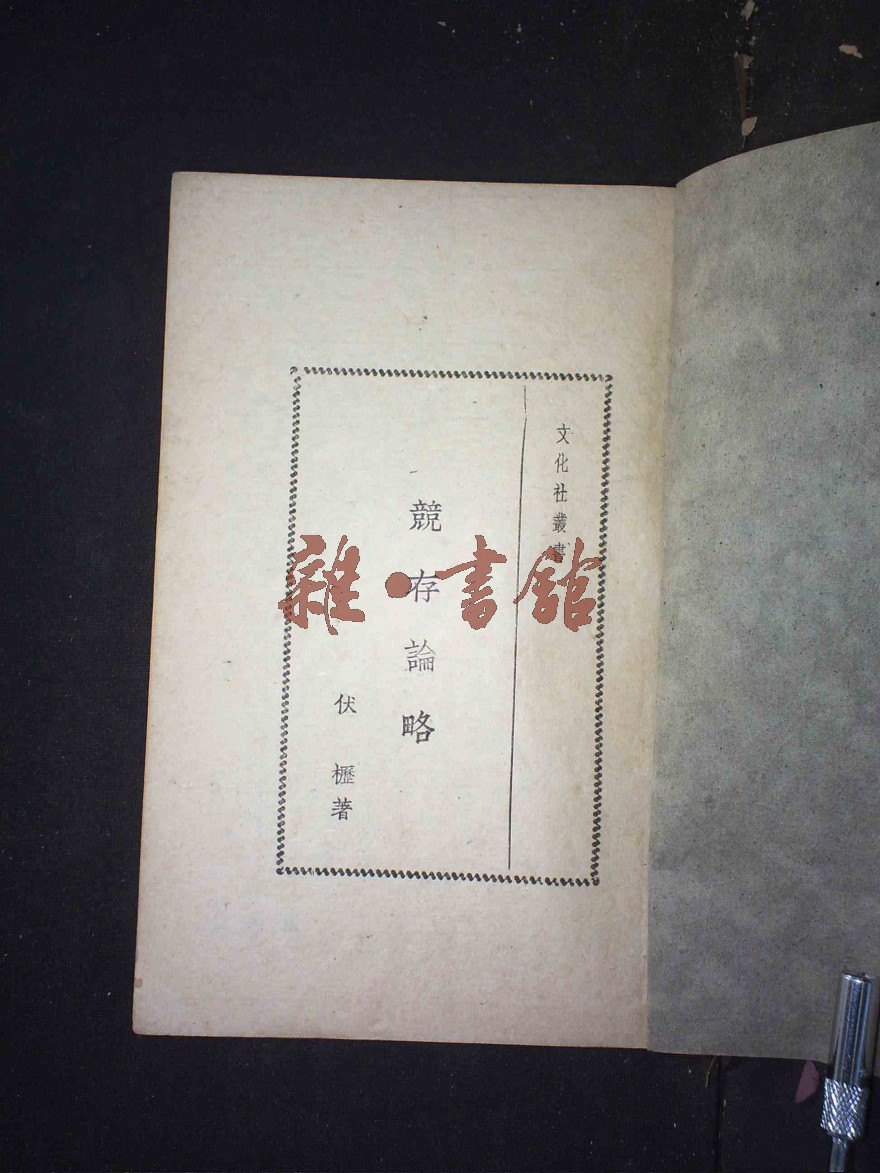 文化社叢書
競存論略
伏櫪著
雜·書館